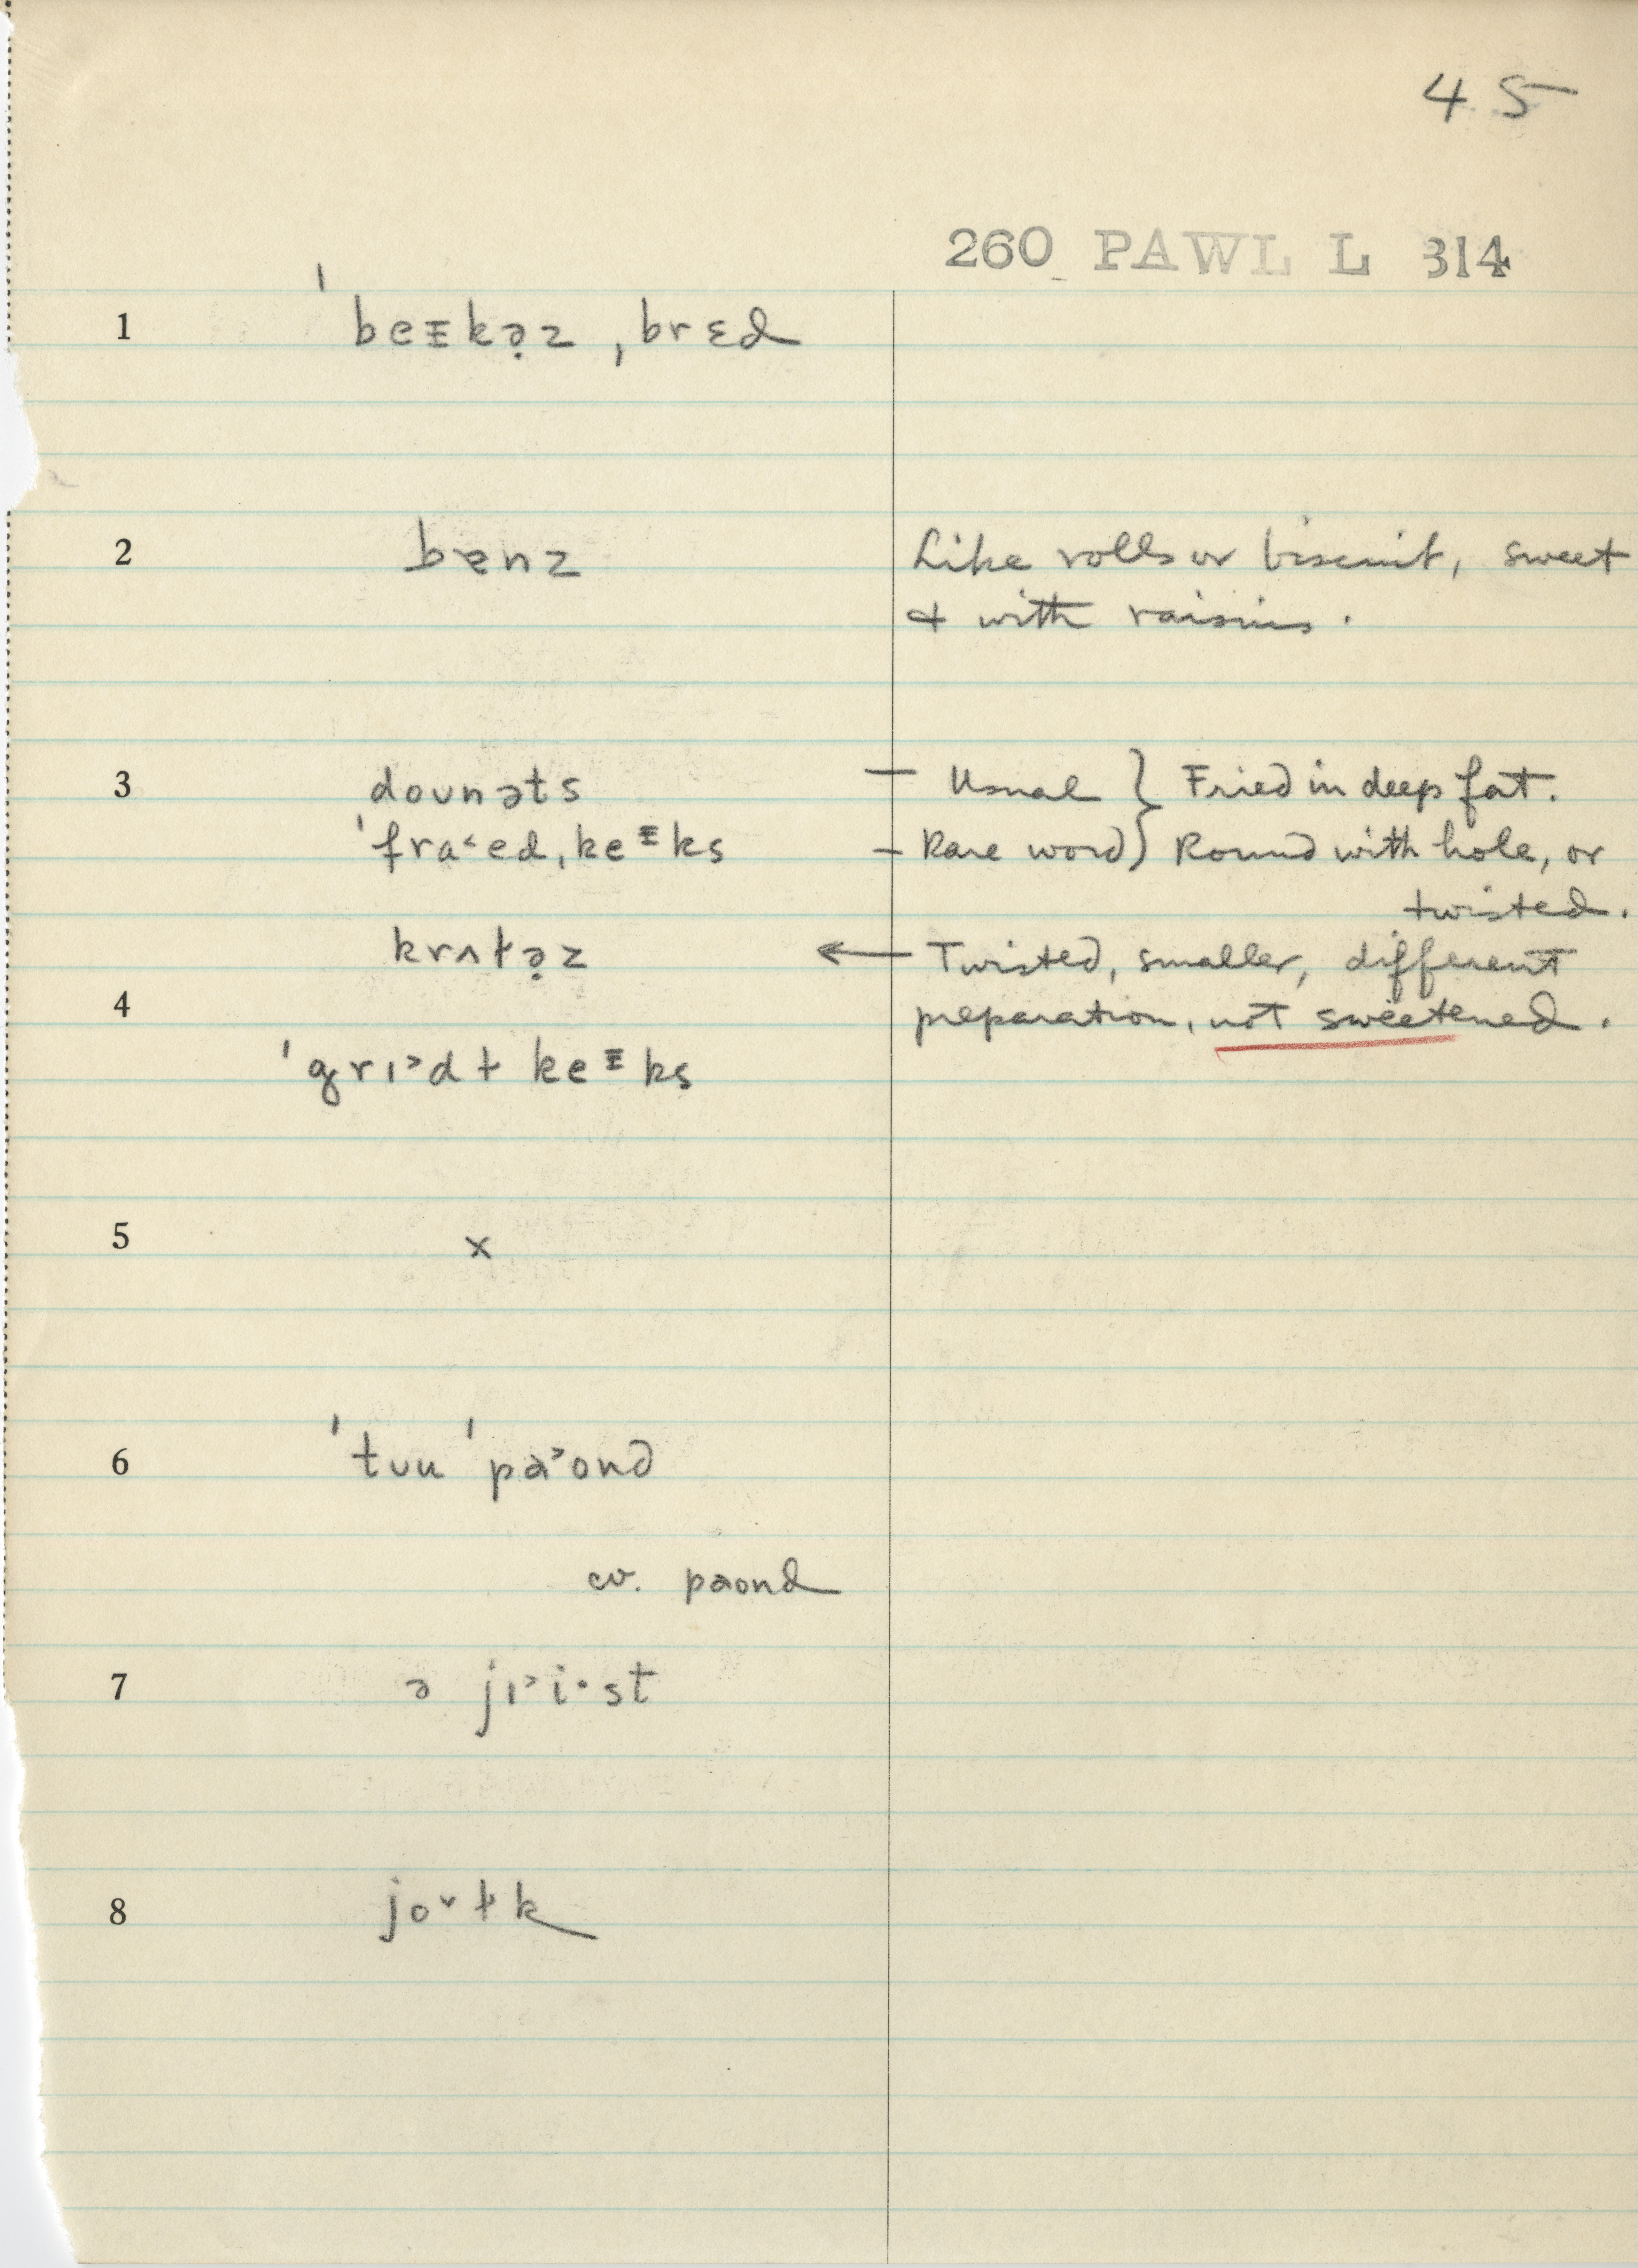 45
260 PAWL L 314
1 ˈbeɪkə̣z ˌbrɛd
2 bɐnz Like rolls or biscuit, sweet
+ with raisins.
3 doʊnəts — Usual } Fried in deep fat.
ˈfra˂ed ˌkeᵻks — Rare word } Round with hole, or
twisted.
krʌɫə̣z ← Twisted, smaller, different
4 preparation, not sweetened.
ˈgrɪ˃dɫ keᵻks
5 x
6 ˈtʊu ˈpa˃ond
cv. paond
7 ə jɪ˃i·st
8 jo˅ɫk